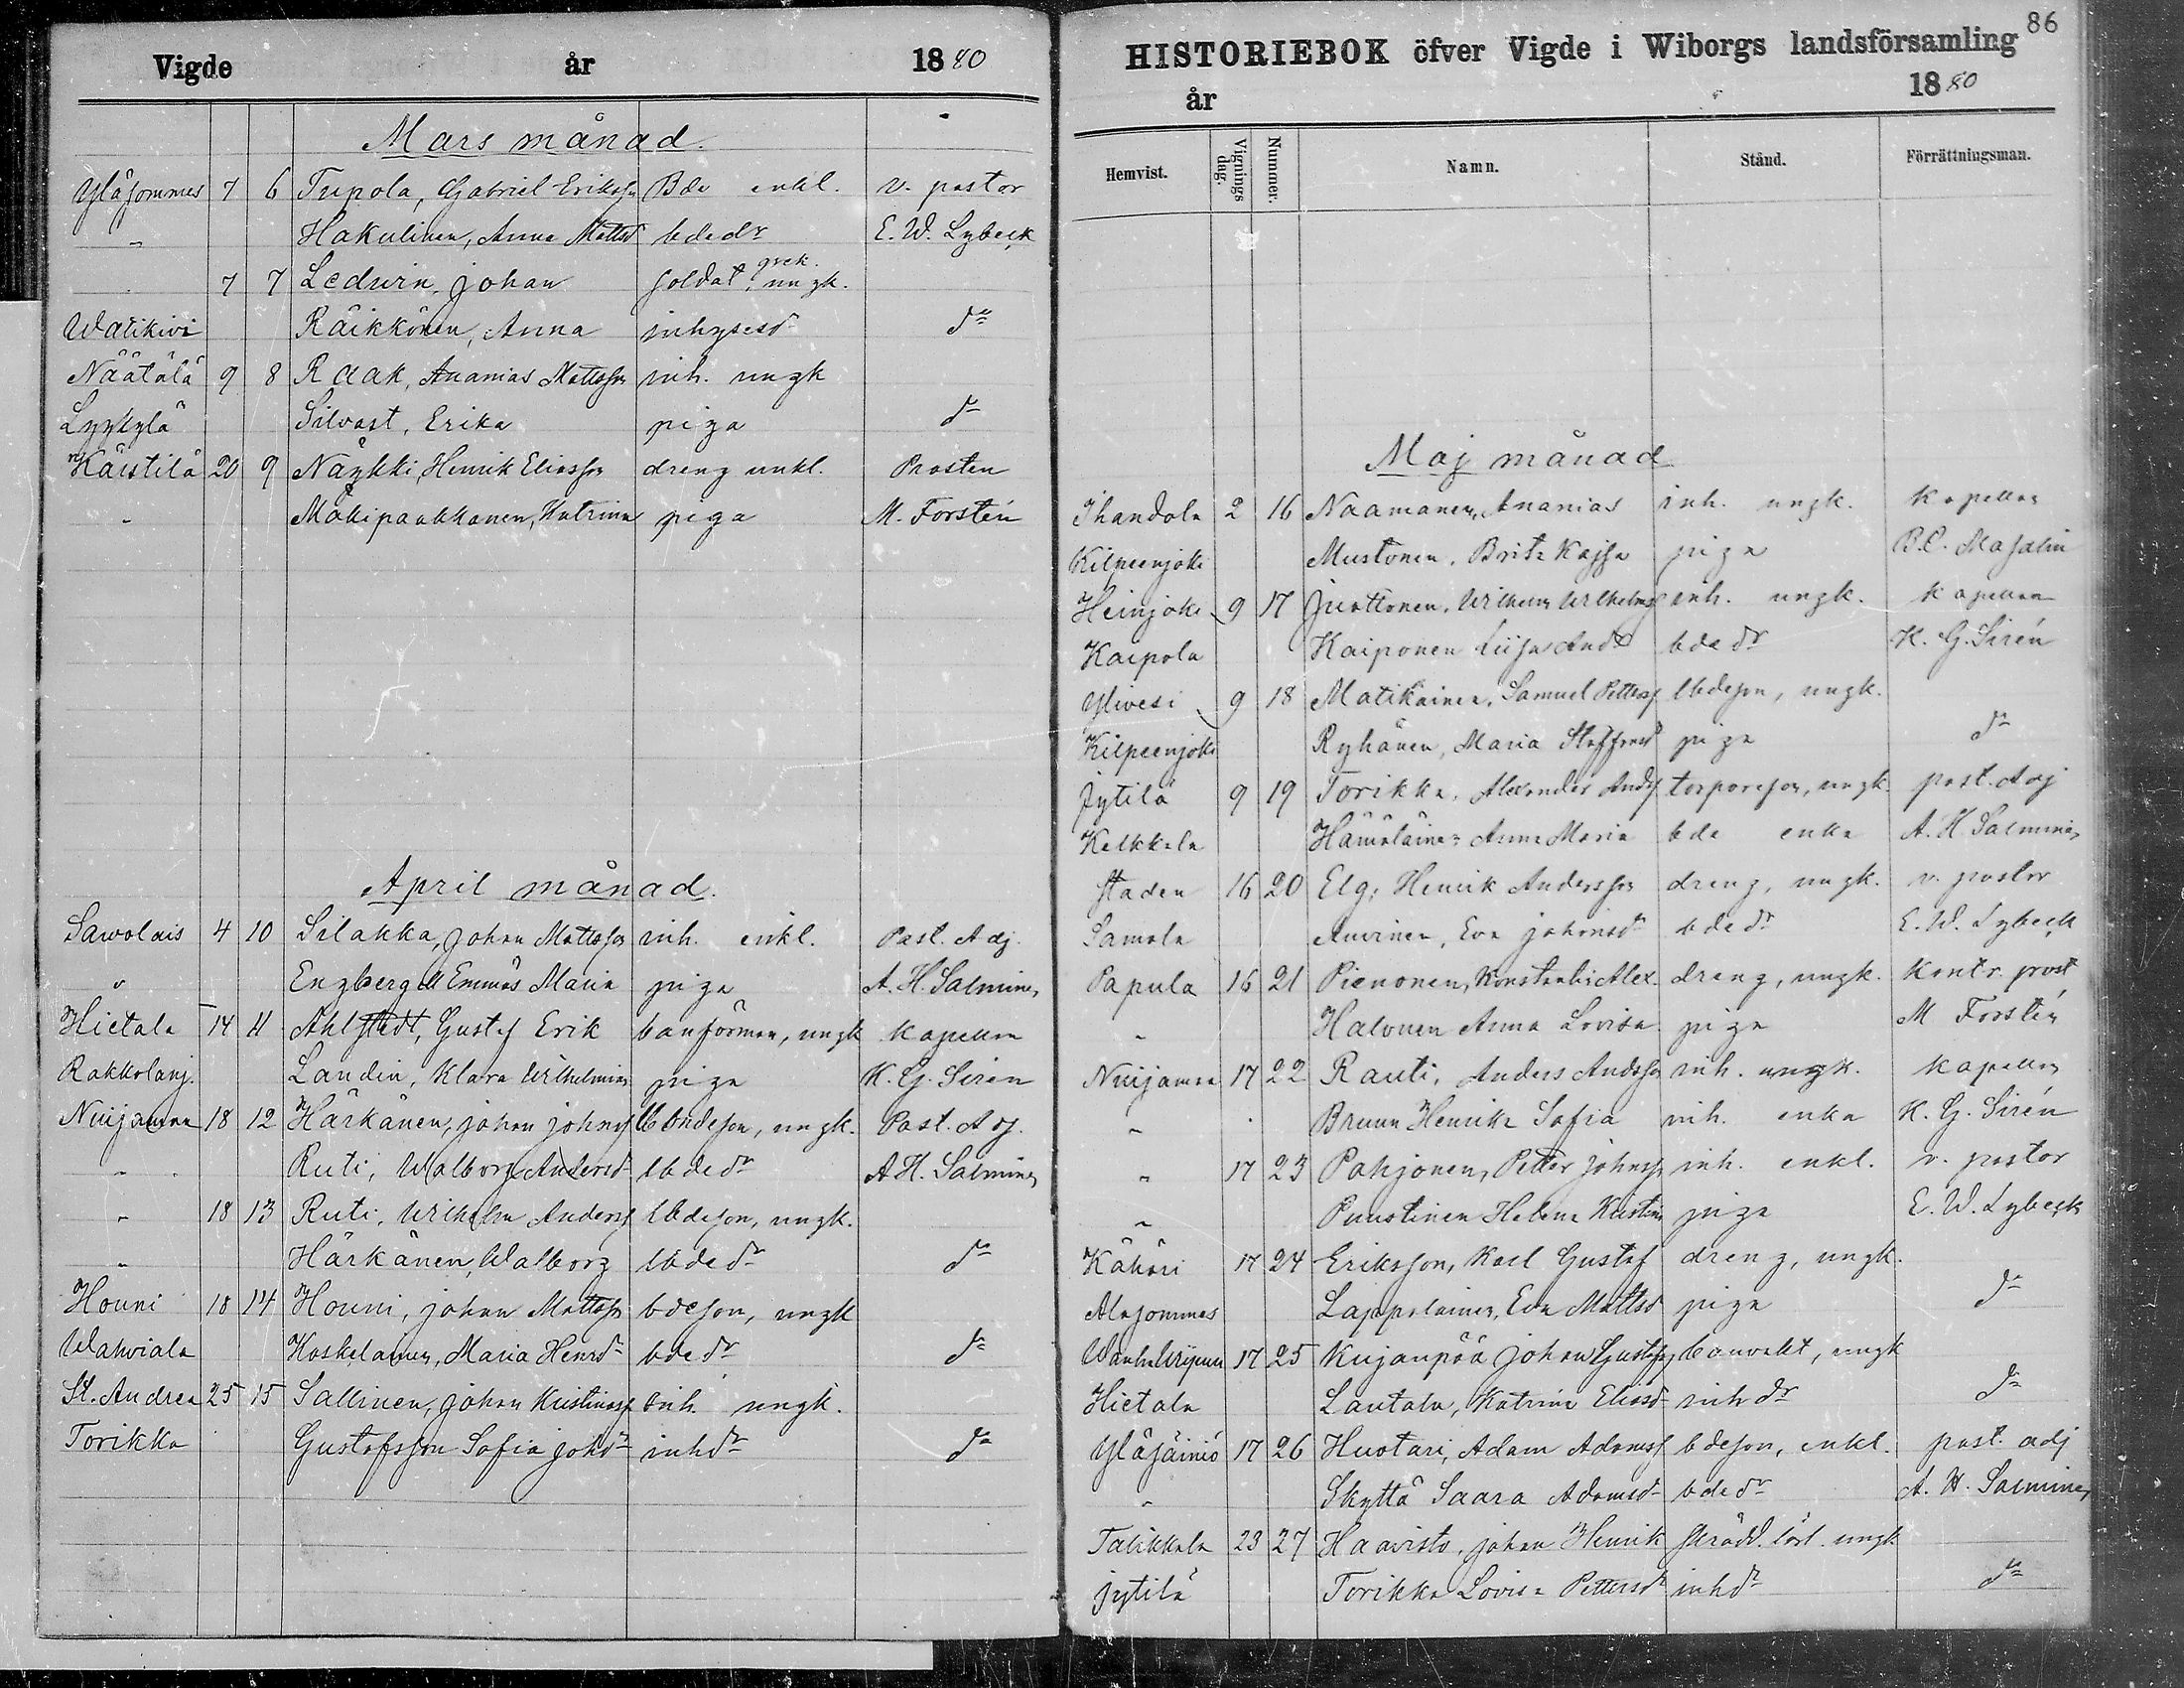 Vigde år 1880
Mars månad.
Yläsommes 7 6 Tupola, Gabriel Eriksson Bde enkl. v. pastor
" Hakulinen, Anna Mattsd bdedr E. W. Lybeck
7 7 Ledwin, Johan Soldat, grek. ungk.
Watikivi Räikkönen, Anna inhysesd do
Näätälä 9 8 Raak, Ananias Mattsson inh. ungk
Lyykylä Silvast, Erika piga do
Kärstilä 20 9 Näykki, Henrik Eliasson dreng enkl. Prosten
" Mäkipaakkanen, Katrina piga M. Forstén
April månad.
Sawolais 4 10 Silakka, Johan Mattsson inh. enkl. Past. Adj.
" Engberg Emma Maria piga A. H. Salminen
Hietala 14 11 Ahlstedt, Gustaf Erik banförman, ungk Kapellan
Rakkolanj. Landin, Klara Wilhelmina piga K. G. Sirén
Nuijamaa 18 12 Härkänen, Johan Johnss lbondeson, ungk. Past. Adj.
" Ruti, Walborg Andersd lbdedr A. H. Salminen
" 18 13 Ruti, Wilhelm Anderss lbdeson, ungk.
" Härkänen, Walborg lbdedr do
Houni 18 14 Houni, Johan Mattss bdeson, ungk
Wahviala Koskelainen, Maria Henrsd bdedr do
St. Andrea 25 15 Sallinen, Johan Kristinass inh. ungk.
Torikka Gustafsson Sofia Johdr inhdr do
86
HISTORIEBOK öfver Vigde i Wiborgs landsförsamling
år 1880
Hemvist. Vignings dag. Nummer. Namn. Stånd. Förrättningsman.
Maj månad
Ihandola 2 16 Naamanen, Ananias inh. ungk. Kapellan
Kilpeenjoki Mustonen, Brita Kajsa piga
Heinjoki 9 17 Juottonen, Wilhelm Wilhelmss inh. ungk. Kapellan
Kaipola Kaiponen Liisa Andd bdedr K. G. Sirén
Ylivesi 9 18 Matikainen, Samuel Petterss lbdeson, ungk.
Kilpeenjoki Ryhänen, Maria Staffansd piga do
Jytilä 9 19 Torikka, Alexander Andss torpareson, ungk. past. Adj
Kelkkala Hämäläinen Anna Maria bde enka A. H. Salminen
Staden 16 20 Elg, Henrik Andersson dreng, ungk. v. pastor
Samola Auvinen, Eva Johansdr bdedr E. W. Lybeck
Papula 16 21 Pienonen, Konstantin Alex. dreng, ungk. Kontr. prost
" Halonen Anna Lovisa piga M Forstén
Nuijamaa 17 22 Rauti, Anders Andsson inh. ungk. Kapellan
" Bruun Henrika Sofia inh. enka K. G. Sirén
" 17 23 Pohjonen, Petter Johnss inh. enkl. v. pastor
" Puustinen Helena Kristina piga E. W. Lybeck
Kähäri 17 24 Eriksson, Karl Gustaf dreng, ungk.
Alasommes Lappalainen, Eva Mattsd piga do
Wanha 17 25 Kujanpää Johan Gustafss banvakt, ungk
Hietala Lautala, Katrina Eliasd inhdr do
Yläsäiniö 17 26 Huotari, Adam Adamss bdeson, enkl. past. adj
" Skyttä Saara Adamsd bdedr A. H. Salminen
Talikkala 23 27 Haavisto, Johan Henrik skrädd. lärl. ungk
Jytilä Torikka Lovisa Pettersdr inhdr do